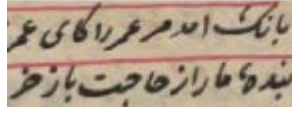 بانک امد مر عمر را کای عمر
بندهٔ ما را ز حاجت باز خر